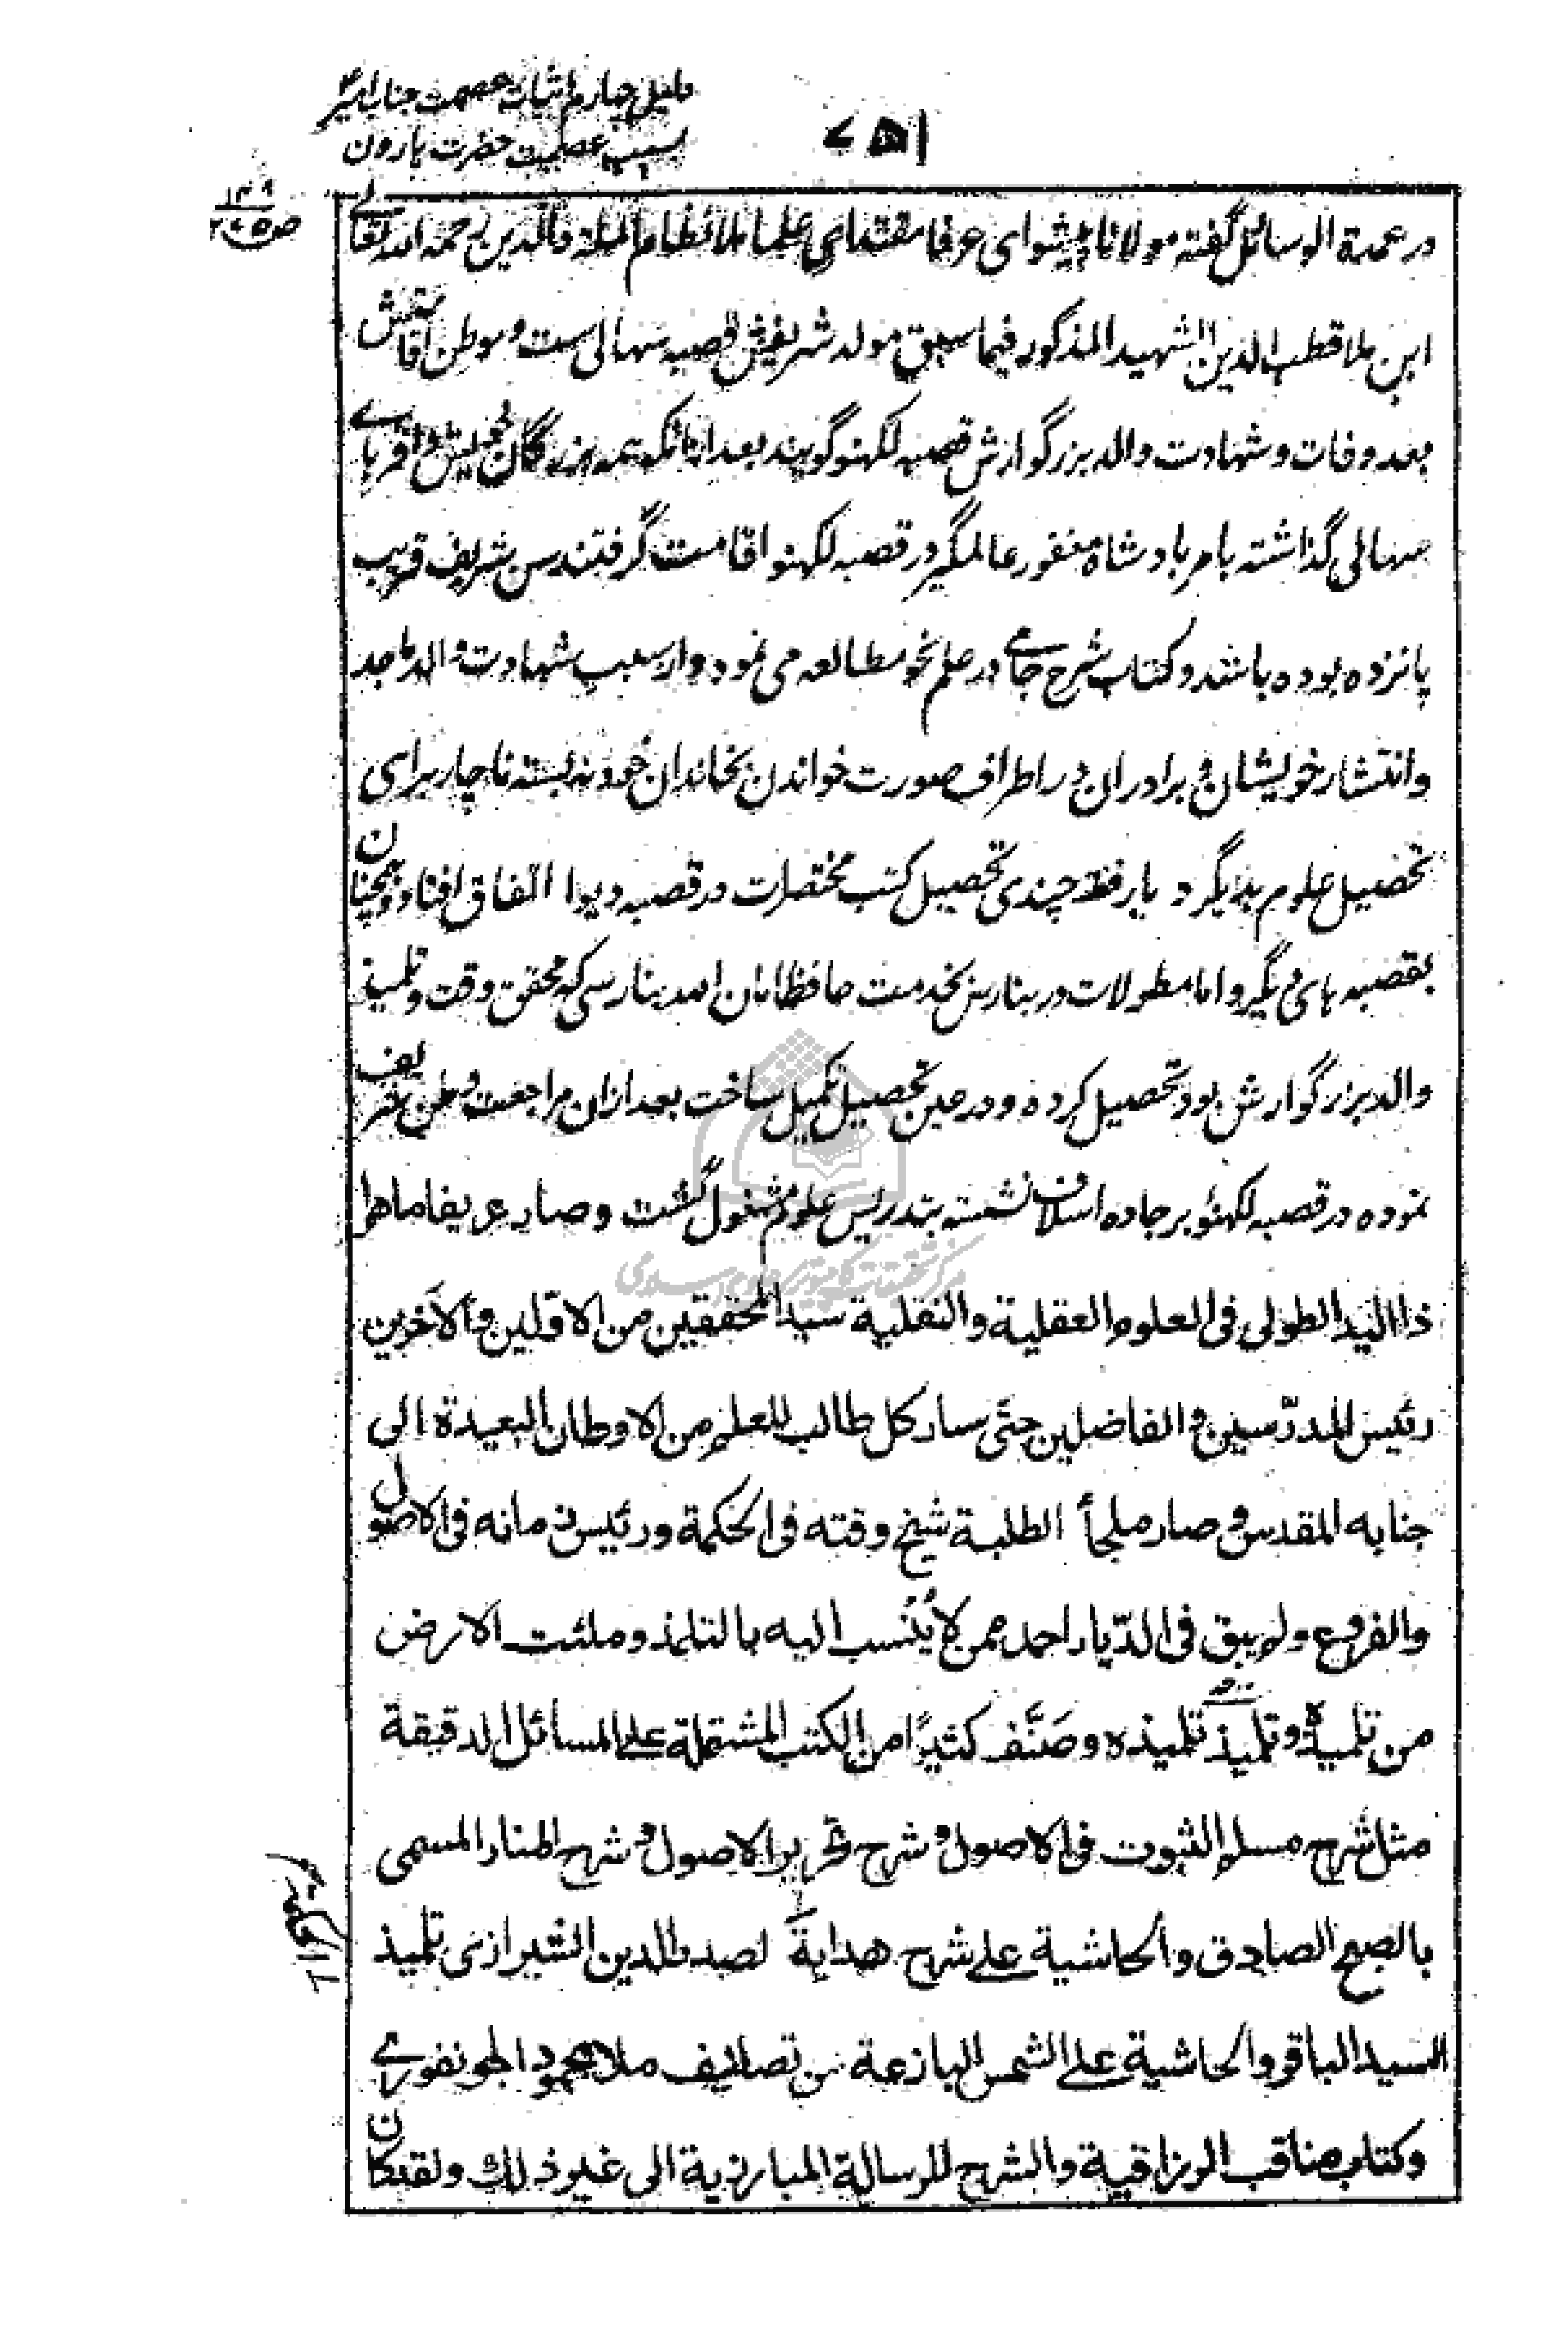 دلیل چهارم اثبات عصمت جناب امیر
بسبب عصمت حضرت هارون
۷۵۱
در عمدة الوسائل گفته مولانا پیشوای عرفا مقتدای علما ملا نظام الملة والدین رحمه الله تعالی
ابن ملا قطب الدین الشهید المذکور فیما سبق مولد شریفش قصبه سهالی ست و موطن اقامتش
بعد وفات و شهادت والد بزرگوارش قصبه لکهنو گویند بعد ازانکه همه بزرگان خویش و اقربای
سهالی گذاشته بامر بادشاه مغفور عالمگیر در قصبه لکهنو اقامت گرفتند سن شریف قریب
پانزده بوده باشد و کتاب شرح جامی در علم نحو مطالعه می نمود و از سبب شهادت والد ماجد
و انتشار خویشان و برادران در اطراف صورت خواندن بخاندان خود نه بسته ناچار برای
تحصیل علوم بدیگر دیار رفته چندی تحصیل کتب مختصرات در قصبه دیوا اتفاق افتاد و همچنان
بقصبه های دیگر و اما مطولات در بنارس بخدمت حافظ امان الله بنارسی که محقق وقت و تلمیذ
والد بزرگوارش بود تحصیل کرده و در عین تحصیل تکمیل ساخت بعد ازان مراجعت وطن شریف
نموده در قصبه لکهنؤ بر جاده اسلاف نشسته بتدریس علوم مشغول گشت وصار عریفا ماهرا
ذا الید الطولی فی العلوم العقلیة والنقلیة سید المحققین من الاولین والآخرین
رئیس المدرّسین والفاضلین حتّی سار کل طالب للعلم من الاوطان البعیدة الی
جنابه المقدس وصار ملجأ الطلبة شیخ وقته فی الحکمة ورئیس زمانه فی الاصول
والفروع ولم یبق فی الدّیار احد ممن لا یُنْسب الیه بالتلمذ وملئت الارض
من تلمیذه وتلمیذ تلمیذه وصَنَّف کثیرًا من الکتب المشتملة علی المسائل الدقیقة
مثل شرح مسلم الثبوت فی الاصول وشرح تحریر الاصول وشرح المنار المسمی
بالصبح الصادق والحاشیة علی شرح هدایة لصدر الدین الشیرازی تلمیذ
السید الباقر والحاشیة علی الشمس البازغة من تصانیف ملا محمود الجونفوری
وکتاب مناقب الرزاقیة والشرح للرسالة المبارزیة الی غیر ذلك ولقد کان